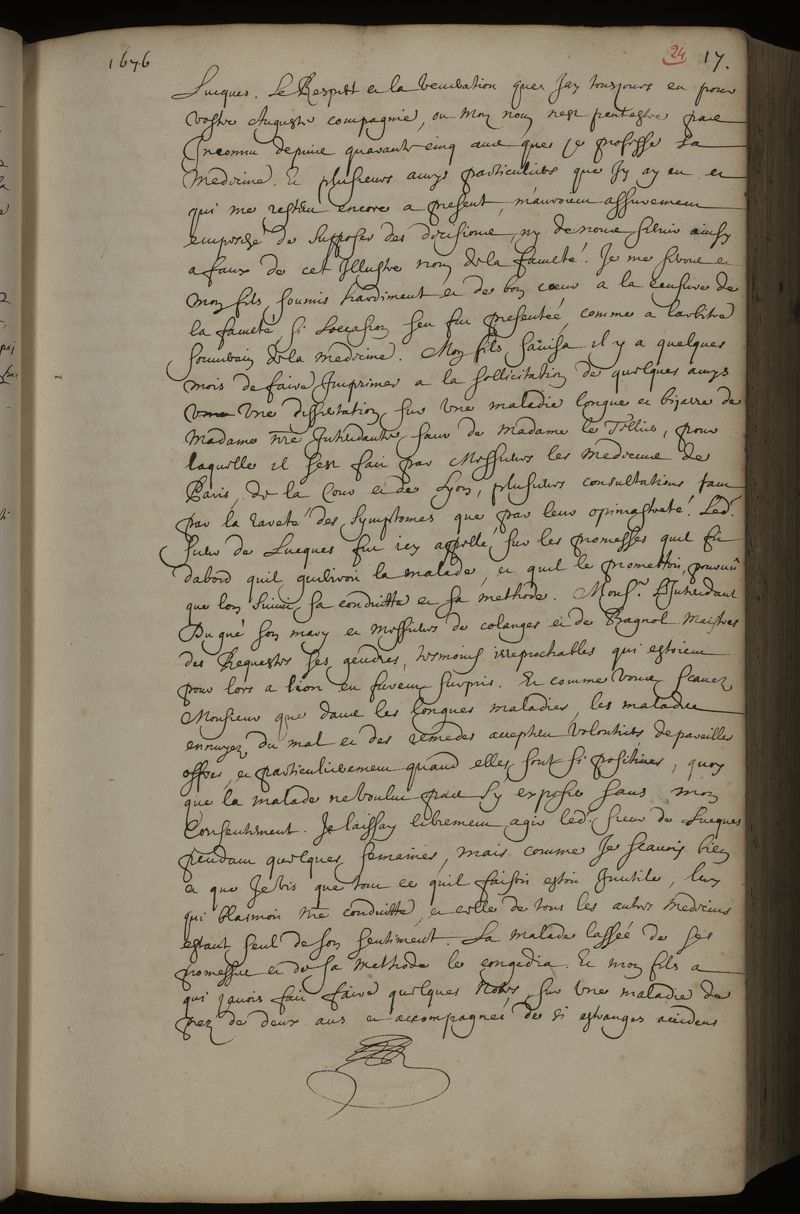 1676
24 17.
Lucques. Le Respect et la veneration que J'ay tousjours eu pour
vostre Auguste compagnie, ou mon nom nest peutestre pas
Inconnu depuis quarante cinq ans que je professe La
Medecine. Et plusieurs amys particuliers que Jy ay eu et
qui me restent encore a present, m'auroient assurement
empesché de supposer des decisions, ny de nous servir ainsy
a faux de cet Illustre nom de la faculté. Je me serois et
mon fils soumis hardiment et de bon cœur a la censure de
la faculté si Loccasion sen fut presenteé, comme a larbitre
souverain de la medecine. Mon fils savisa il y a quelques
mois de faire Imprimer a la sollicitation de quelques amys
Une dissertation sur Une maladie longue et bizarre de
Madame nre Intendante sœur de Madame le Tellier, pour
laquelle il sest fait par Messieurs les Medecins de
Paris, de la Cour et de Lyon, plusieurs consultations tant
par la rareté des symptomes que par leur opiniastreté. Led.
sieur de Lucques fut icy appellé sur les promesses quil fit
dabord quil gueriroit la malade, et quil le promettoit, pourvû
que lon suivit sa conduitte et sa methode. Monsr. L'Intendant
Du gué son mary et messieurs de colanges et de Bagnol Maistres
des Requestes ses gendres, tesmoins irreprochables qui estoient
pour lors a lion en furent surpris. Et comme vous scavez
Monsieur que dans les longues maladies, les malades
ennuyez du mal et des remedes acceptent volontiers de pareilles
offres, et particulierement quand elles sont si positives, quoy
que la malade ne voulut pas sy exposer sans mon
Consentement. Je laissay librement agir led. sieur de Lucques
pendant quelques semaines, mais comme Je scavois bien
et que Je vis que tout ce quil faisoit estoit Inutile, luy
qui blasmoit nre conduitte, et celle de tous les autres Medecins
estant seul de son sentiment. La malade lasseé de ses
promesses et de sa methode le congedia. Et mon fils a
qui j'avois fait faire quelques Notes sur Une maladie de
prez de deux ans et accompagneé de si estranges accidens